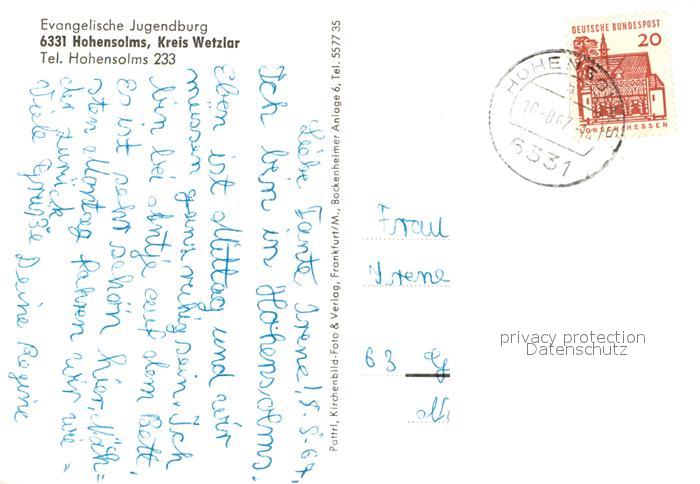 Evangelische Jugendburg
6331 Hohensolms, Kreis Wetzlar
Tel. Hohensolms 233
Liebe Tante Irene! 5.8.67.
Ich bin in Hohensolms.
Eben ist Mittag und wir
müssen ganz ruhig sein. Ich
bin bei Antje auf dem Bett.
Es ist sehr schön hier. Näch=
sten Montag fahren wir wie=
der zurück.
Viele Grüße Deine Regine
Pattri, Kirchenbild-Foto & Verlag, Frankfurt/M., Bockenheimer Anlage 6, Tel. 55 77 35
DEUTSCHE BUNDESPOST
20
LORSCH/HESSEN
HOHENSO
6331
Frau
Irene
63 G
privacy protection
Datenschutz